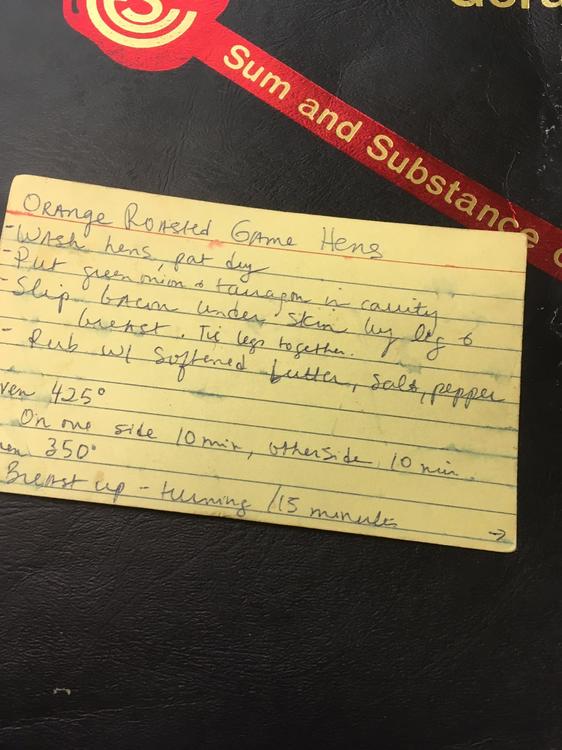 S
Sum and Substance
ORANGE ROASTED GAME HENS
-Wash hens, pat dry
-Put green onion & tarragon in cavity
-Slip bacon under skin by leg &
breast. Tie legs together.
- Rub w/ softened butter, salt, pepper
ven 425°
On one side 10 min, other side 10 min.
en 350°
Breast up - turning /15 minutes
→